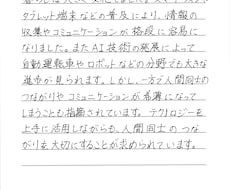 タブレット端末などの普及により、情報の
収集やコミュニケーションが格段に容易に
なりました。またAI技術の発展によって
自動運転車やロボットなどの分野でも大きな
進歩が見られます。しかし、一方で人間同士の
つながりやコミュニケーションが希薄になって
しまうことも指摘されています。テクノロジーを
上手に活用しながらも、人間同士のつな
がりを大切にすることが求められています。